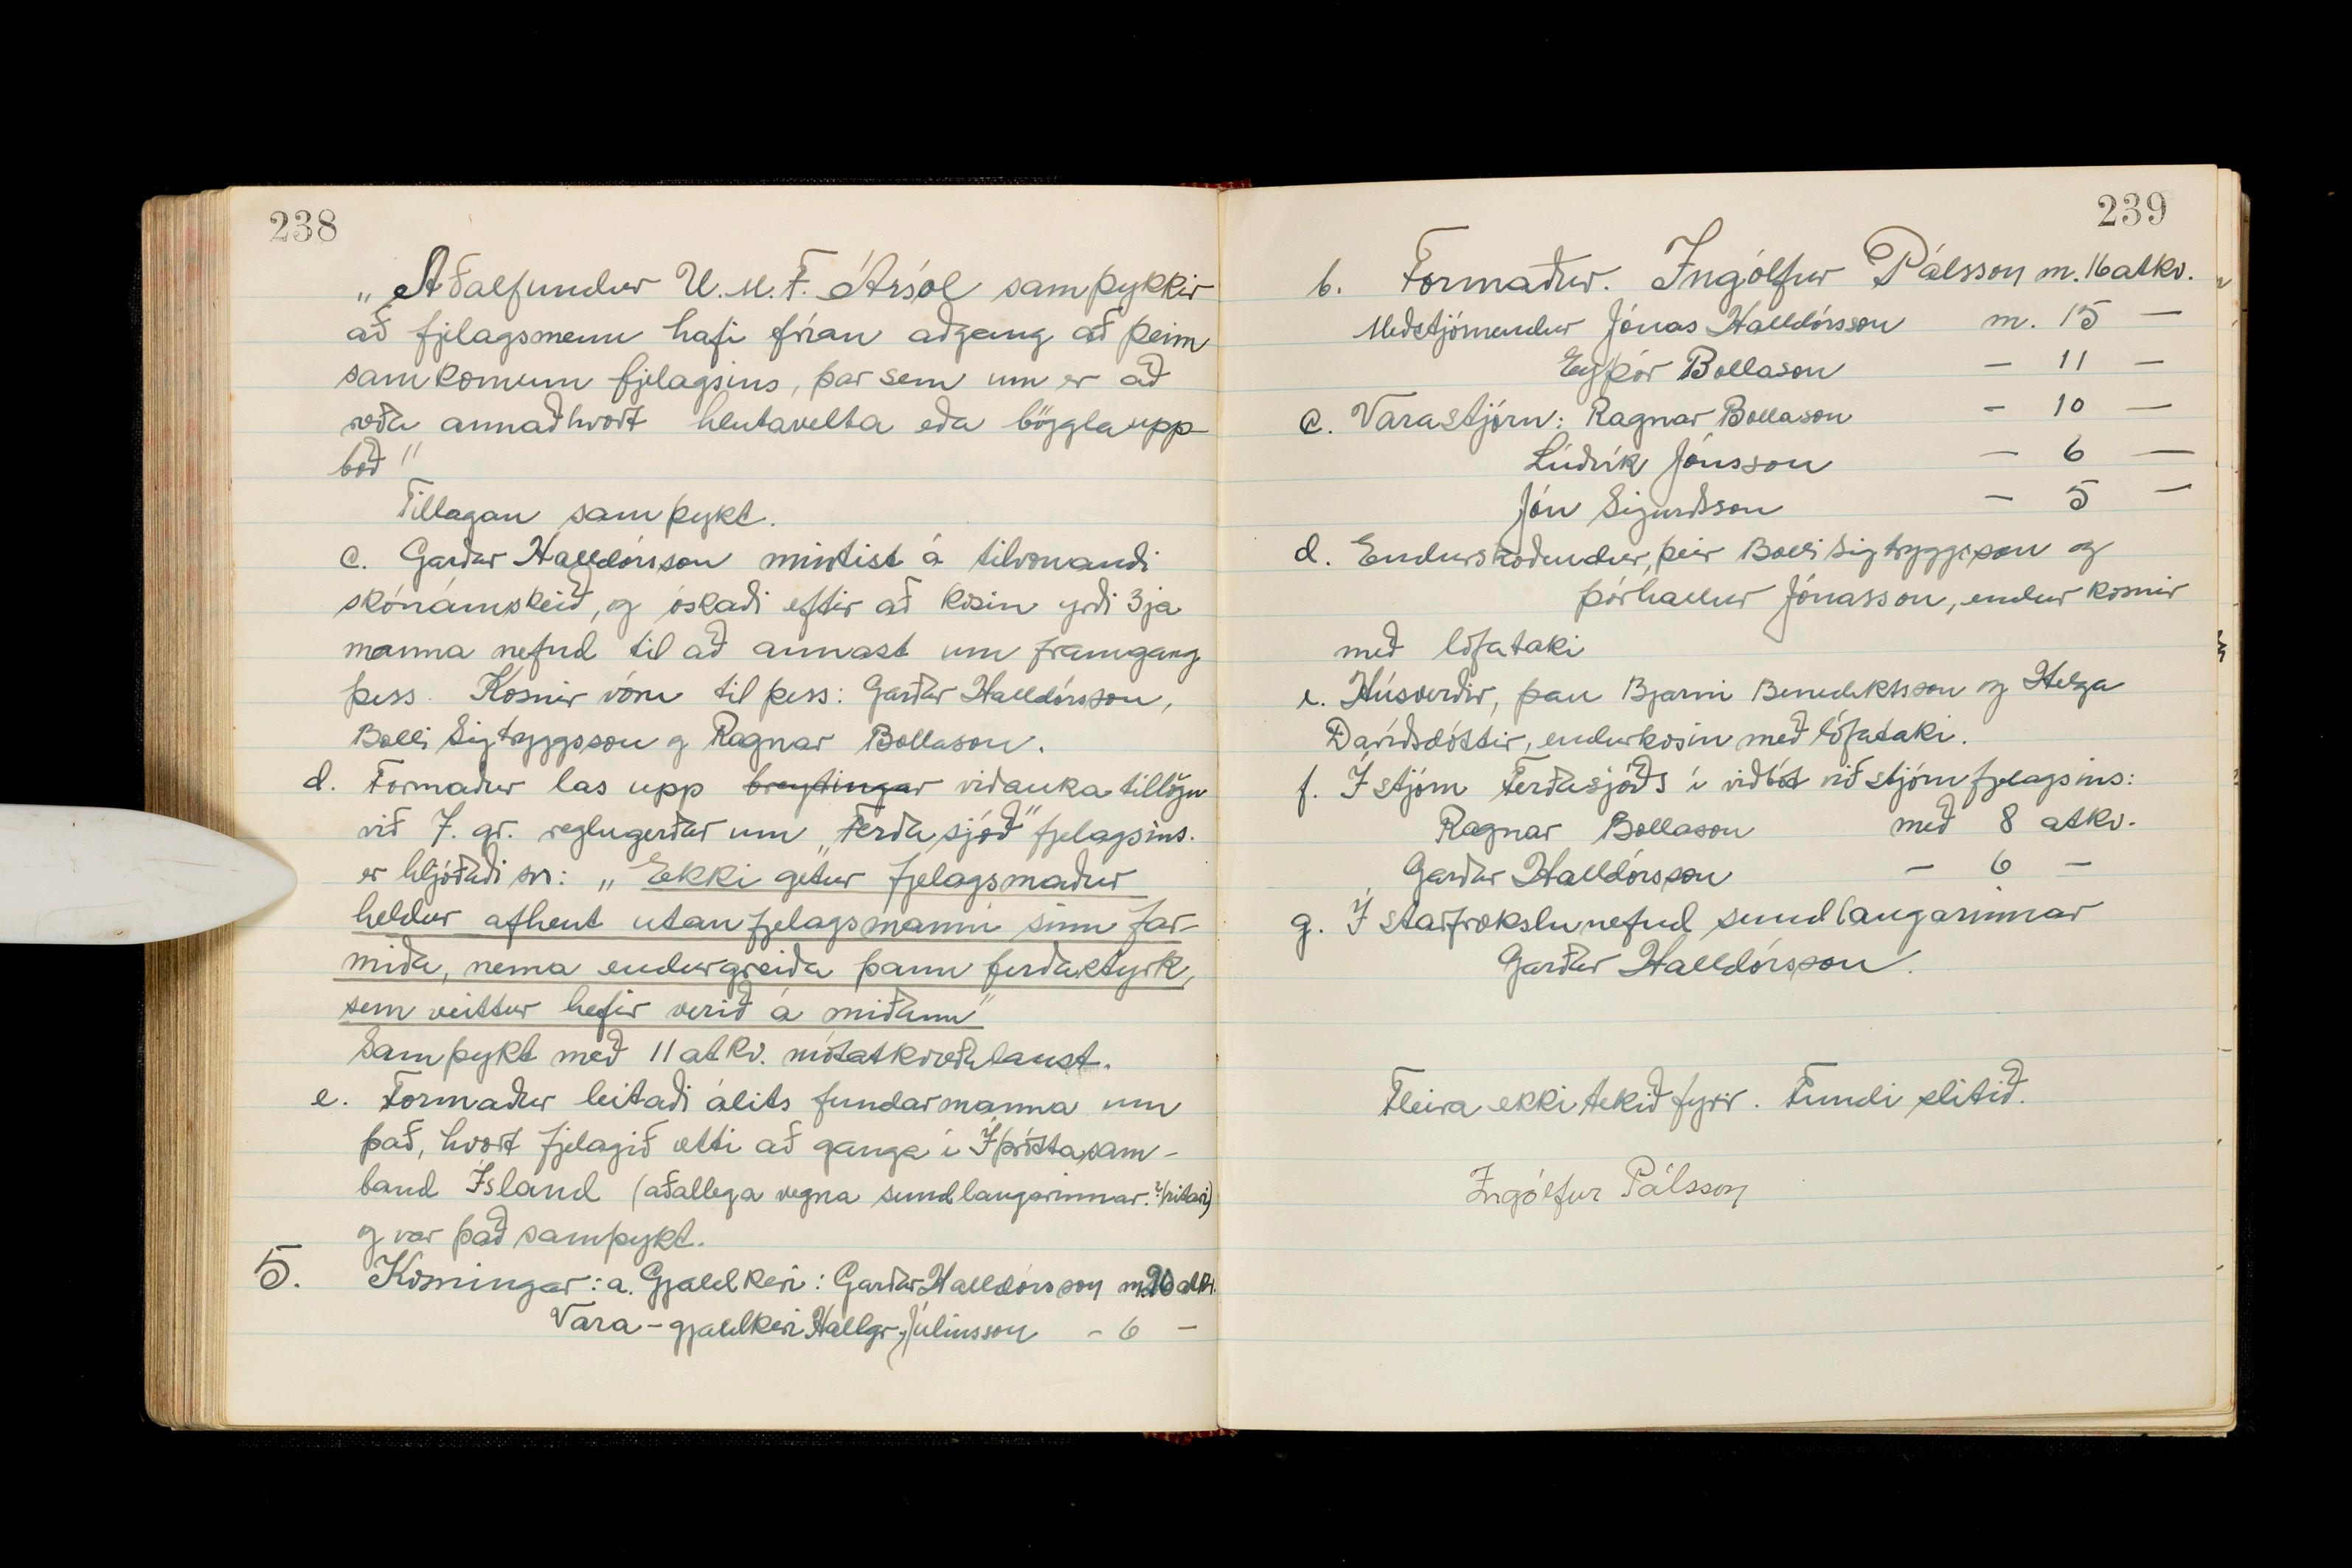 238
„Aðalfundur U.M.F. Ársól samþykkir
að fjelagsmenn hafi frían aðgang að þeim
samkomum fjelagsins, þar sem um er að
ræða annaðhvort hlutavelta eða böggla upp-
boð"
Tillagan samþykt.
c. Garðar Halldórsson mintist á tilvonandi
skónámskeið, og óskaði eftir að kosin yrði 3ja
manna nefnd til að annast um framgang
þess. Kosnir vóru til þess: Garðar Halldórsson,
Bolli Sigtryggsson og Ragnar Bollason.
d. Formaður las upp breytingar viðauka tillögu
við 7. gr. reglugerðar um „Ferðasjóð" fjelagsins.
er hljóðaði svo: „Ekki getur fjelagsmaður
heldur afhent utanfjelagsmanni sinn far-
miða, nema endurgreiða þann ferðastyrk,
sem veittur hefir verið á miðann"
Samþykt með 11 atkv. mótatkvæðalaust.
e. Formaður leitaði álits fundarmanna um
það, hvort fjelagið ætti að ganga í Íþróttasam-
band Ísland (aðallega vegna sundlaugarinnar. ?/ritari)
og var það samþykt.
5. Kosningar: a. Gjaldkeri: Garðar Halldórsson m. 26 atkv.
Vara-gjaldkeri Hallgr. Júlíusson - 6 -
239
b. Formaður. Ingólfur Pálsson m. 16 atkv.
Meðstjórnendur Jónas Halldórsson m. 15 —
Eyþór Bollason — 11 —
c. Varastjórn: Ragnar Bollason - 10 —
Lúðvík Jónsson — 6 —
Jón Sigurðsson — 5 —
d. Endurskoðendur, þeir Bolli Sigtryggsson og
Þórhallur Jónasson, endur kosnir
með lófataki
e. Húsverðir, þau Bjarni Benediktsson og Helga
Davíðsdóttir, endurkosin með lófataki.
f. Í stjórn Ferðasjóðs í viðbót við stjórn fjelagsins:
Ragnar Bollason með 8 atkv.
Garðar Halldórsson — 6 —
g. Í starfrækslunefnd sundlaugarinnar
Garðar Halldórsson.
Fleira ekki tekið fyrir. Fundi slitið.
Ingólfur Pálsson